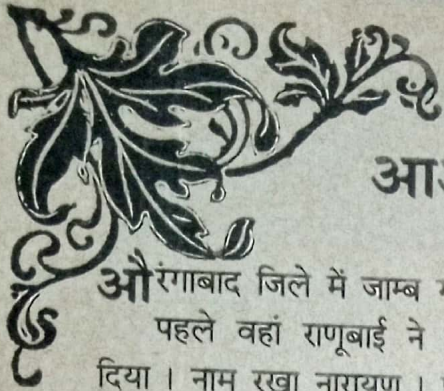 औरंगाबाद जिले में जाम्ब
पहले वहां राणूबाई ने
दिया । नाम रखा नारायण ।